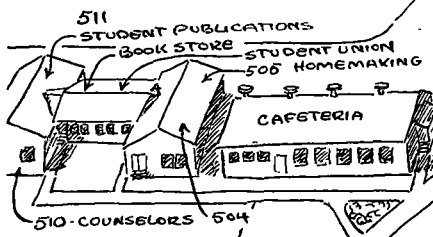 511
STUDENT PUBLICATIONS
BOOK STORE
STUDENT UNION
505 HOMEMAKING
CAFETERIA
510-COUNSELORS
504